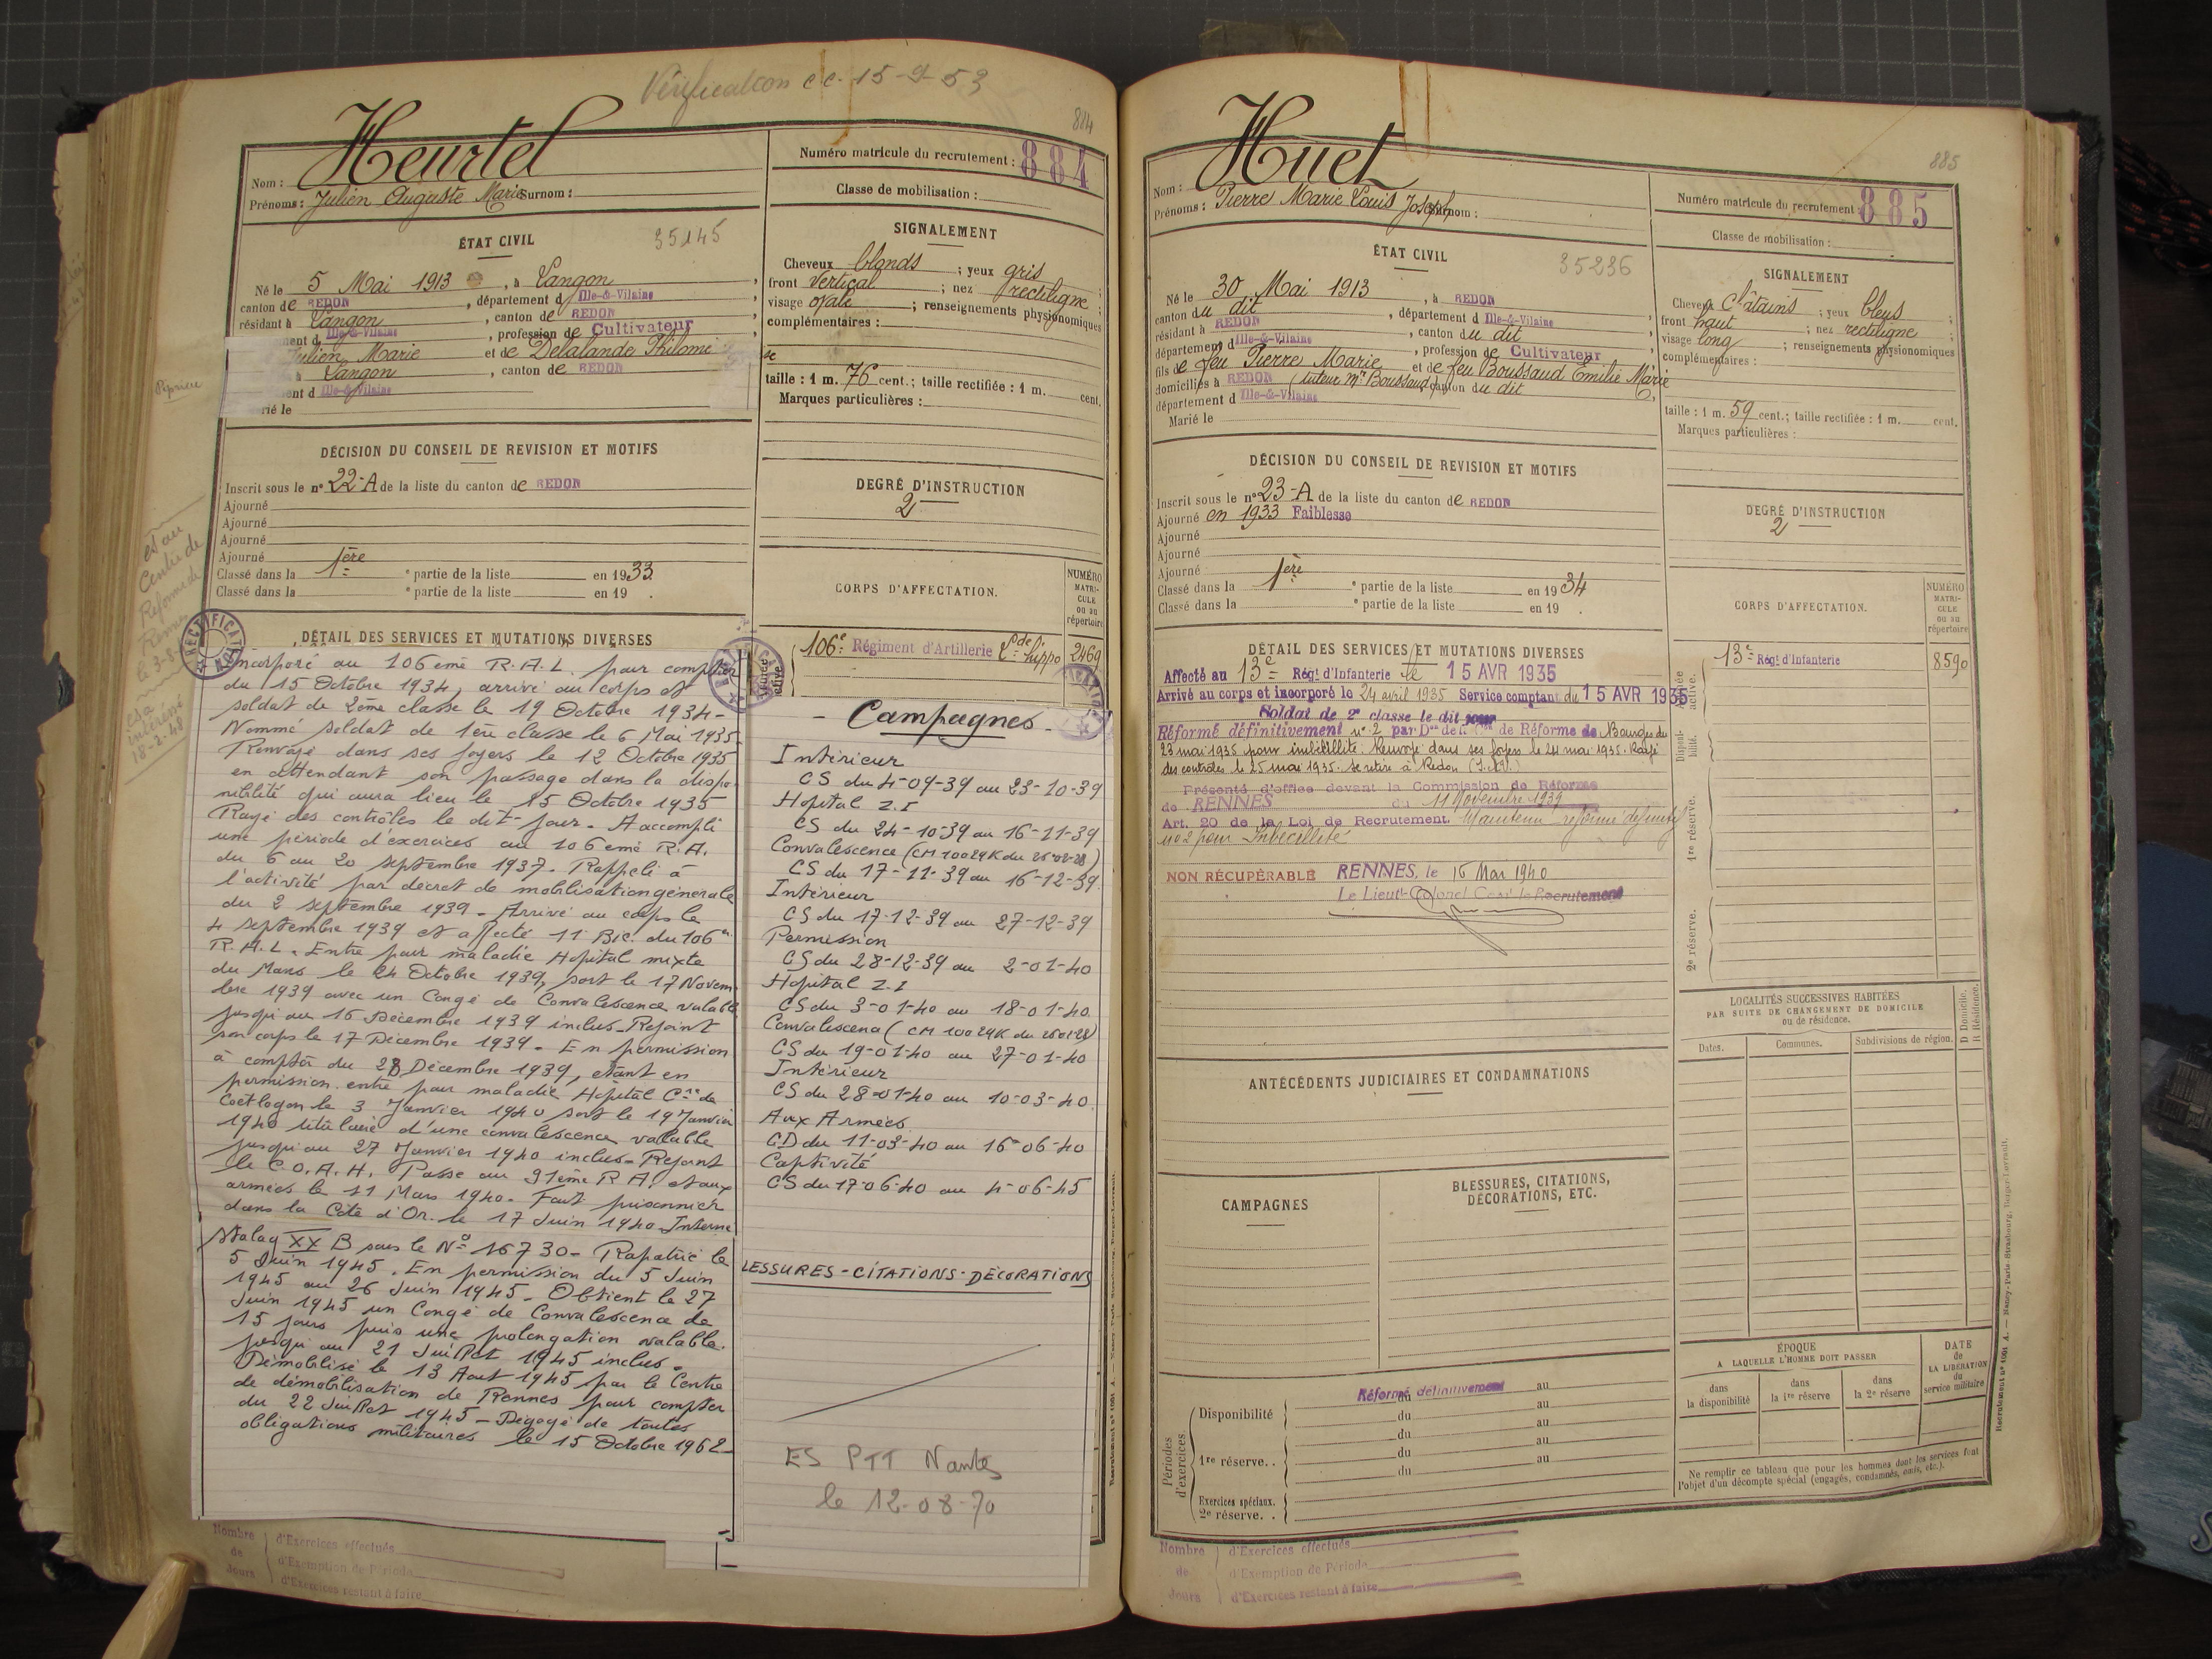 Vérification c.c. 15-9-53
884
Nom : Heurtel
Prénoms : Julien Auguste Marie Surnom :
Numéro matricule du recrutement : 884
Classe de mobilisation :
ÉTAT CIVIL
35145
Né le 5 Mai 1913, à Langon,
canton de REDON, département d Ille-&-Vilaine,
résidant à Langon, canton de REDON,
ment d Ille-&-Vilaine, profession de Cultivateur
Julien Marie et de Delalande Philomène
à Langon, canton de REDON
ent d Ille-&-Vilaine
rié le
SIGNALEMENT
Cheveux blonds ; yeux gris
front vertical ; nez rectiligne ;
visage ovale ; renseignements physionomiques
complémentaires :
taille : 1 m. 76 cent. ; taille rectifiée : 1 m. cent.
Marques particulières :
DÉCISION DU CONSEIL DE REVISION ET MOTIFS
Inscrit sous le n° 22-A de la liste du canton de REDON
Ajourné
Ajourné
Ajourné
Ajourné
Classé dans la 1ère ° partie de la liste en 1933
Classé dans la ° partie de la liste en 19 .
DEGRÉ D'INSTRUCTION
2
CORPS D'AFFECTATION.
NUMÉRO
MATRI-
CULE
ou au
répertoire
106e Régiment d'Artillerie Lde hippo 2469
est au
Centre de
Réforme de
Rennes
le 3-8-
18-2-48
DÉTAIL DES SERVICES ET MUTATIONS DIVERSES
Incorporé au 106ème R.A.L. pour compter
du 15 Octobre 1934, arrivé au corps et
soldat de 2ème classe le 19 Octobre 1934 -
Nommé soldat de 1ère classe le 6 Mai 1935
Renvoyé dans ses foyers le 12 Octobre 1935
en attendant son passage dans la dispo-
nibilité qui aura lieu le 15 Octobre 1935
Rayé des contrôles le dit-jour - A accompli
une période d'exercices au 106ème R.A.
du 6 au 20 septembre 1937. Rappelé à
l'activité par décret de mobilisation générale
du 2 septembre 1939 - Arrivé au corps le
4 septembre 1939 et affecté 11 Bie. du 106e
R.A.L. Entre pour maladie Hôpital mixte
du Mans le 24 Octobre 1939, sort le 17 Novem
bre 1939 avec un Congé de Convalescence valable
jusqu'au 16 Décembre 1939 inclus - Rejoint
son corps le 17 Décembre 1939 - En permission
à compter du 28 Décembre 1939, étant en
permission entre pour maladie Hôpital Cre de
Coëtlogon le 3 Janvier 1940 sort le 19 Janvier
1940 titulaire d'une convalescence valable
jusqu'au 27 Janvier 1940 inclus - Rejoint
le C.O.A.H. Passe au 31ème R.A. et aux
armées le 11 Mars 1940 - Fait prisonnier
dans la Côte d'Or le 17 Juin 1940 - Interné
stalag XX B sous le N° 16730 - Rapatrié le
5 Juin 1945. En permission du 5 Juin
1945 au 26 Juin 1945 - Obtient le 27
Juin 1945 un Congé de Convalescence de
15 jours puis une prolongation valable
jusqu'au 21 Juillet 1945 inclus.
Démobilisé le 13 Août 1945 par le Centre
de démobilisation de Rennes pour compter
du 22 Juillet 1945 - Dégagé de toutes
obligations militaires le 15 Octobre 1962 -
- Campagnes -
Intérieur
CS du 4-09-39 au 23-10-39
Hopital Z.I
CS du 24-10-39 au 16-11-39
Convalescence (CM 10029K du 26-02-28)
CS du 17-11-39 au 16-12-39
Intérieur
CS du 17-12-39 au 27-12-39
Permission
CS du 28-12-39 au 2-01-40
Hopital Z.I
CS du 3-01-40 au 18-01-40
Convalescence (CM 10029K du 26-02-28)
CS du 19-01-40 au 27-01-40
Intérieur
CS du 28-01-40 au 10-03-40
Aux Armées
CD du 11-03-40 au 16-06-40
Captivité
CS du 17-06-40 au 4-06-45
LESSURES - CITATIONS - DÉCORATIONS
ES PTT Nantes
le 12-08-70
Nombre de Jours
d'Exercices effectués
d'Exemption de Période
d'Exercices restant à faire
885
Nom : Huet
Prénoms : Pierre Marie Louis Joseph Surnom :
Numéro matricule du recrutement 885
Classe de mobilisation :
ÉTAT CIVIL
35236
Né le 30 Mai 1913, à REDON
canton du dit, département d Ille-&-Vilaine
résidant à REDON, canton du dit
département d Ille-&-Vilaine, profession de Cultivateur
fils de feu Pierre Marie et de feu Boussaud Emilie Marie
domiciliés à REDON (tuteur Mr Boussaud) canton du dit
département d Ille-&-Vilaine
Marié le
SIGNALEMENT
Cheveux châtains ; yeux bleus ;
front haut ; nez rectiligne ;
visage long ; renseignements physionomiques
complémentaires :
taille : 1 m. 59 cent. ; taille rectifiée : 1 m. cent.
Marques particulières :
DÉCISION DU CONSEIL DE REVISION ET MOTIFS
Inscrit sous le n° 23-A de la liste du canton de REDON
Ajourné en 1933 Faiblesse
Ajourné
Ajourné
Ajourné
Classé dans la 1ère ° partie de la liste en 1934
Classé dans la ° partie de la liste en 19 .
DEGRÉ D'INSTRUCTION
2
CORPS D'AFFECTATION.
NUMÉRO
MATRI-
CULE
ou au
répertoire
13e Régt d'Infanterie 8590
active.
Disponi-
bilité.
1re réserve.
2e réserve.
DÉTAIL DES SERVICES ET MUTATIONS DIVERSES
Affecté au 13e Régt d'Infanterie le 15 AVR 1935
Arrivé au corps et incorporé le 24 avril 1935 Service comptant du 15 AVR 1935
Soldat de 2e classe le dit jour
Réformé définitivement n° 2 par Don de la Con de Réforme de Bourges du
23 mai 1935 pour imbécillité. Renvoyé dans ses foyers le 24 mai 1935. Rayé
des contrôles le 25 mai 1935. Se retire à Redon (I.&V.)
Présenté d'office devant la Commission de Réforme
de RENNES du 11 Novembre 1939
Art. 20 de la Loi de Recrutement. Maintenu réformé définitif
no 2 pour Imbécillité
NON RÉCUPÉRABLE RENNES, le 16 Mar 1940
Le Lieutt-Colonel Comt le Recrutement
LOCALITÉS SUCCESSIVES HABITÉES
PAR SUITE DE CHANGEMENT DE DOMICILE
ou de résidence.
Dates. Communes. Subdivisions de région. D Domicile. R Résidence.
ANTÉCÉDENTS JUDICIAIRES ET CONDAMNATIONS
CAMPAGNES
BLESSURES, CITATIONS,
DÉCORATIONS, ETC.
Périodes d'exercices.
Réformé définitivement
Disponibilité
du au
du au
du au
1re réserve. .
du au
du au
du au
Exercices spéciaux.
2e réserve. .
ÉPOQUE
A LAQUELLE L'HOMME DOIT PASSER
dans la disponibilité
dans la 1re réserve
dans la 2e réserve
DATE
de
LA LIBÉRATION
du
service militaire
Ne remplir ce tableau que pour les hommes dont les services font
l'objet d'un décompte spécial (engagés, condamnés, omis, etc.).
Recrutement n° 1661 A. — Nancy-Paris-Strasbourg, Berger-Levrault.
Nombre de Jours
d'Exercices effectués
d'Exemption de Période
d'Exercices restant à faire